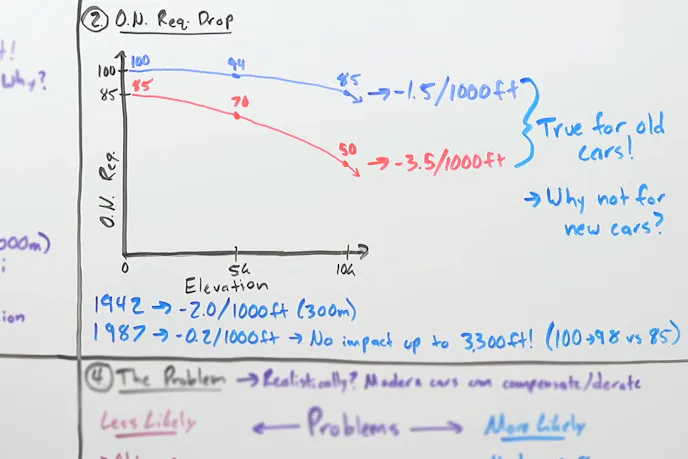 ② O.N. Req. Drop
t!
Why?
100
94
85
100
85
85
70
50
→ -1.5/1000ft
→ -3.5/1000ft
True for old
cars!
→ Why not for
new cars?
O.N. Req.
0
5k
10k
Elevation
000m)
1942 → -2.0/1000ft (300m)
1987 → -0.2/1000ft → No impact up to 3,300ft! (100→98 vs 85)
tion
④ The Problem → Realistically? Modern cars can compensate/derate
Less Likely
← Problems →
More Likely